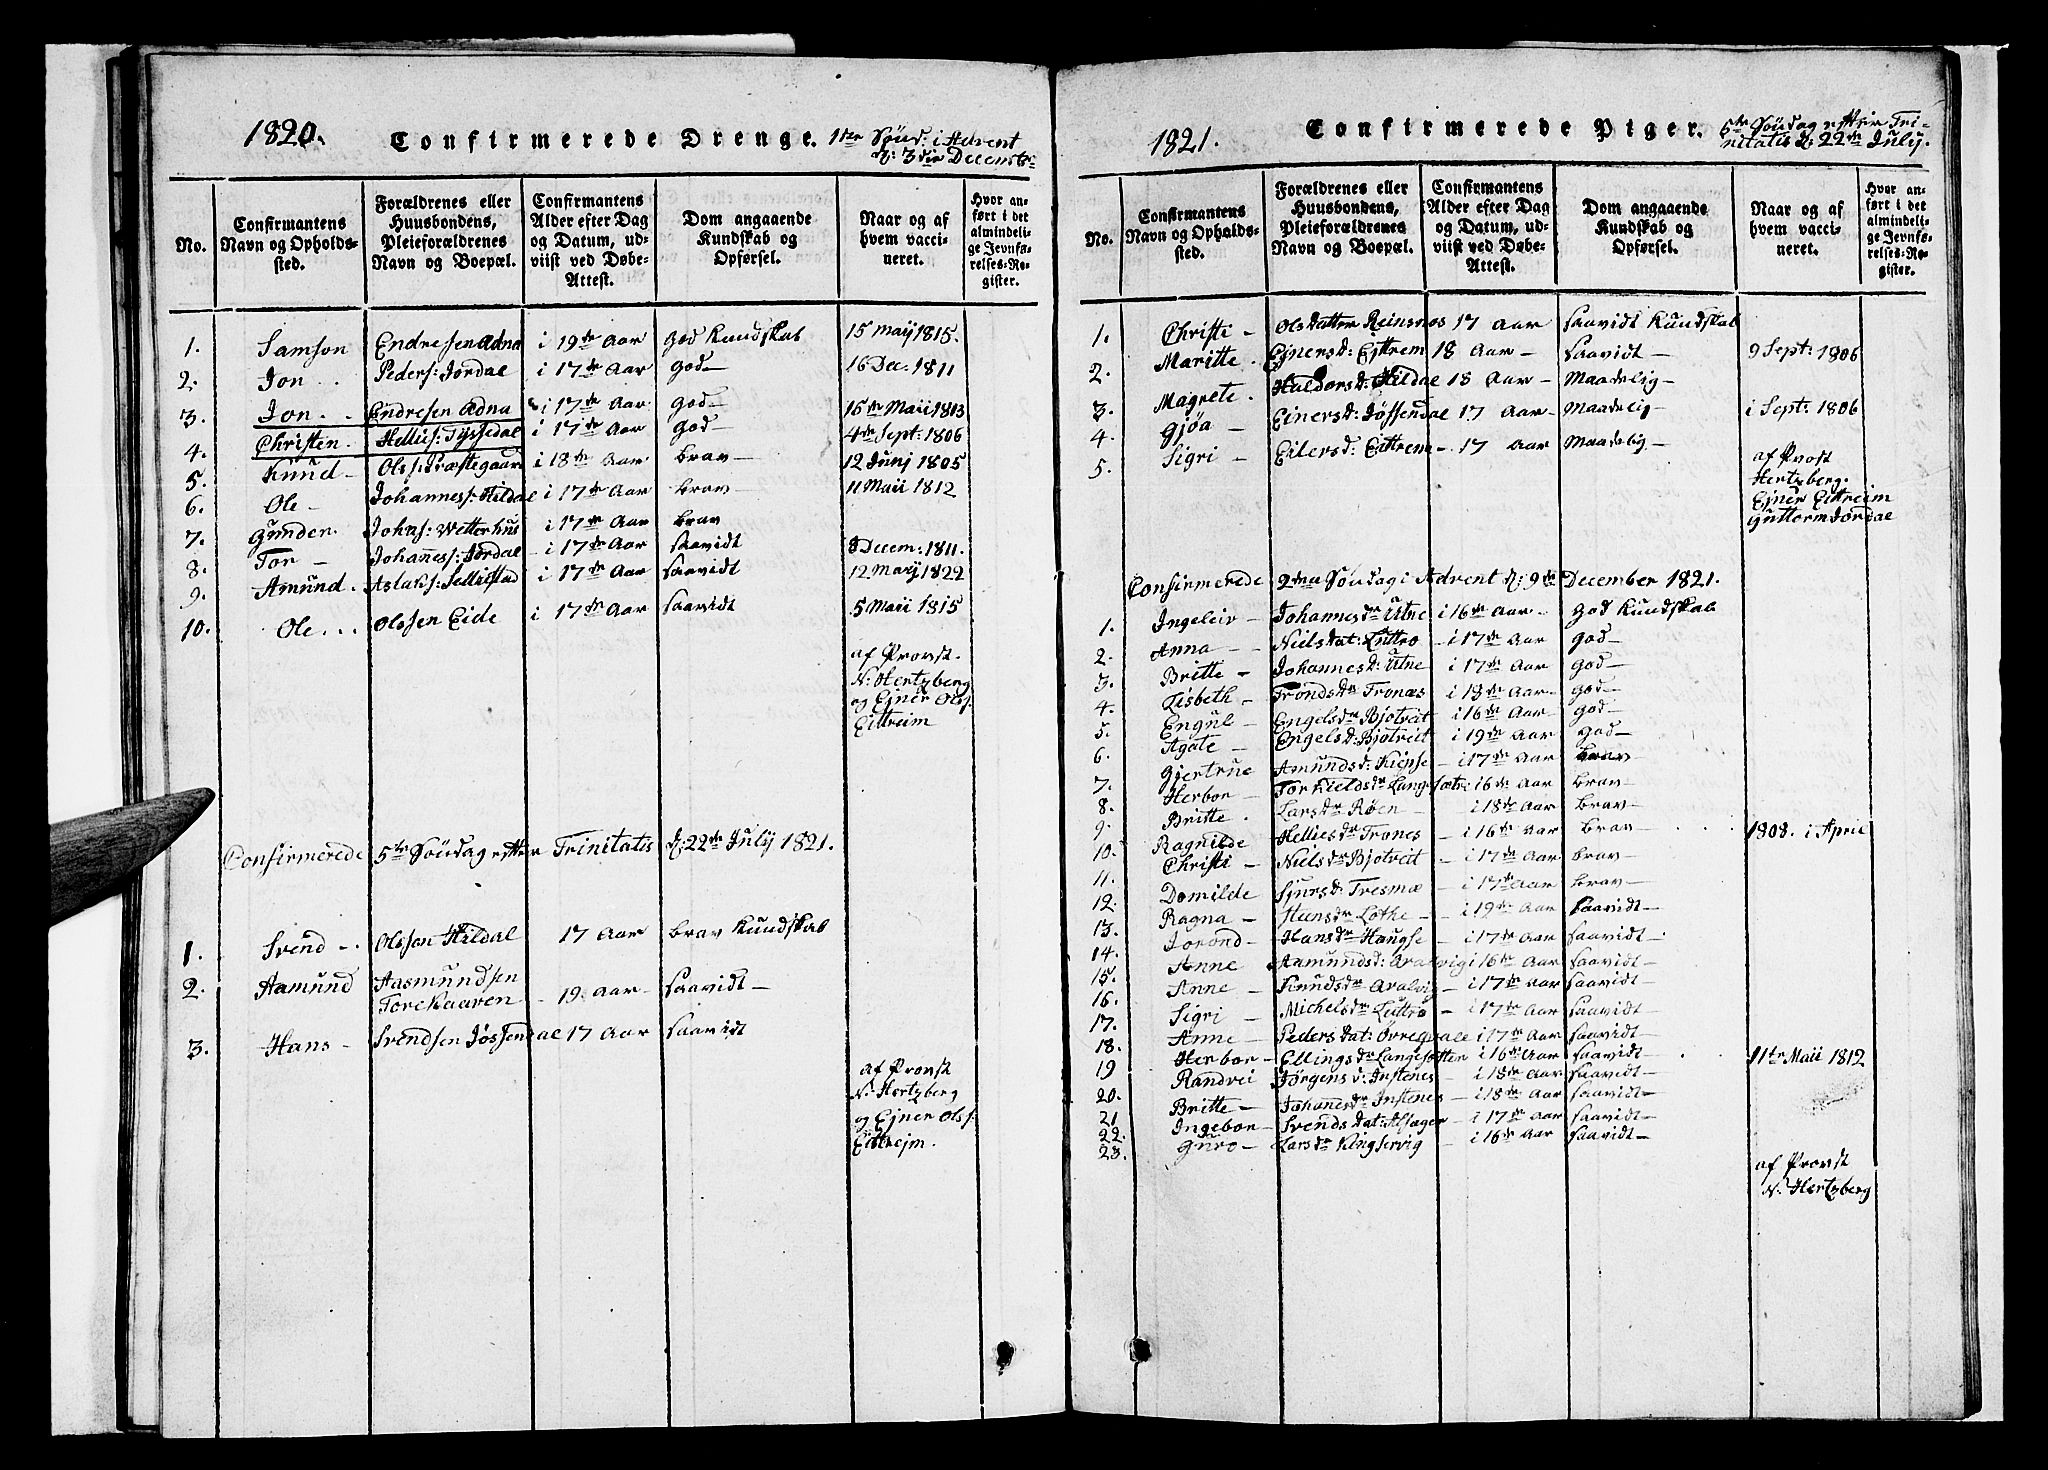 1820. Confirmerede Drenge. 1ste Sönd: i Advent
d: 3die Decembr:
No.
Confirmantens
Navn og Opholds-
sted.
Forældrenes eller
Huusbondens,
Pleieforældrenes
Navn og Boepæl.
Confirmantens
Alder efter Dag
og Datum, ud-
viist ved Døbe-
Attest.
Dom angaaende
Kundskab og
Opførsel.
Naar og af
hvem vacci-
neret.
Hvor an-
ført i det
almindeli-
ge Jevnfø-
relses-Re-
gister.
1. Samson Endresen Adna i 19de Aar god Kundskab 15 Maij 1815.
2. Jon . . Peders: Jordal i 17de Aar god – 16 Dec. 1811
3. Jon . . Endresen Adna i 17de Aar god – 15de Maii 1813
4. Christen . Hellies: Tyssedal i 17de Aar god – 4de Sept: 1806
5. Knud – Olss: Præstegaard i 18de Aar brav – 12 Junj 1805
6. Ole – Johanness: Hildal i 17de Aar brav – 11 Maii 1812
7. Gunder . Johns: Wetterhus i 17de Aar brav
8. Tor – Johanness: Jordal – i 17de Aar saavidt 8 Decem: 1811.
9. Amund . Aslaks: Sellestad i 17de Aar saavidt 12 Marj 1822
10. Ole . . . Olssen Eide i 17de Aar saavidt 5 Maii 1815
af Provst
N: Hertzberg
og Ejner Olss:
Eittreim
Confirmerede 5te Söndag etter Trinitatis d: 22de July 1821.
1. Svend – . Olssen Hildal 17 Aar brav Kundskab
2. Aamund Aasmundsen
Torekaaven – 19 Aar – saavidt –
3. Hans – Svendsen Jøssendal 17 Aar saavidt
af Provst
N: Hertzberg
og Ejner Olss:
Eittrejm.
1821. Confirmerede Piger. 5te Söndag etter Tri-
nitatis d: 22de July.
No.
Confirmantens
Navn og Opholds-
sted.
Forældrenes eller
Huusbondens,
Pleieforældrenes
Navn og Boepæl.
Confirmantens
Alder efter Dag
og Datum, ud-
viist ved Døbe-
Attest.
Dom angaaende
Kundskab og
Opførsel.
Naar og af
hvem vacci-
neret.
Hvor an-
ført i det
almindeli-
ge Jevnfø-
relses-Re-
gister.
1. Christi – Olsdatter Reinsnos 17 Aar saavidt Kundskab
2. Maritte . Ejnersd: Ejttrem 18 Aar – saavidt – 9 Sept: 1806
3. Magrete . Haldorsd: Hildal 18 Aar – Maadelig –
4. Gjøa – Einersd: Jøssendal 17 Aar – Maadelig – i Sept: 1806
5. Sigri – Eilersd: Eittrem – 17 Aar Maadelig –
af Provst
Hertzberg.
Ejner Eittreim
Guttorm Jordal
Confirmerede 2den Söndag i Advent d: 9de December 1821.
1. Ingeleiv – Johannesdr Utne i 16de Aar – god Kundskab
2. Anna – – Nielsdat: Luttro – i 17de Aar god –
3. Britte – Johannesd: Utne i 17de Aar god –
4. Lisbeth – Trondsdr Tronæs i 18de Aar – god –
5. Engul – Engelsdr Bjotveit i 16de Aar – god –
6. Agate – Engelsd: Bjotveit i 19de Aar god –
7. Gjertrue Amundsd: Kiepse – i 17de Aar brav –
8. Herbor – Torkieldsdr Langesætr i 16de Aar brav –
9. Britte . Larsdr Røen – i 18de Aar brav –
10. Ragnilde Helliesdr Trones – i 16de Aar brav – . . . 1808. i April
11. Christi – Nielsdr Bjotveit – i 17de Aar brav –
12. Domilde Sjursd: Tresmæ – i 17de Aar brav –
13. Ragna – Steensdr Lothe – – i 19de Aar saavidt –
14. Jorond – Hansdr Haugse – i 17de Aar saavidt –
15. Anne Aamundsd: Aralvig i 16de Aar saavidt –
16. Anne – Knudsdr Aralvig – i 17de Aar saavidt –
17. Sigri – Michelsdr Luttro – i 17de Aar saavidt –
18. Anne – Pedersdat: Ovregdale i 17de Aar saavidt –
19 Herbor – Ellingsdr Langesætter i 16de Aar saavidt – . 11te Maii 1812
20. Randvei Jörgensd: Instenes – i 18de Aar saavidt –
21 Britte – Johanesdr Instenes – i 18de Aar saavidt –
22. Ingebor – Svendsdat: Alsager – i 17de Aar saavidt –
23. Guro – Larsdr Kingservig – i 16de Aar saavidt –
af Provst
N: Hertzberg